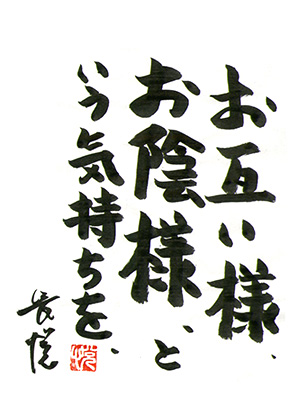 お互い様、
お陰様、と
いう気持ちを、
長悦
悦